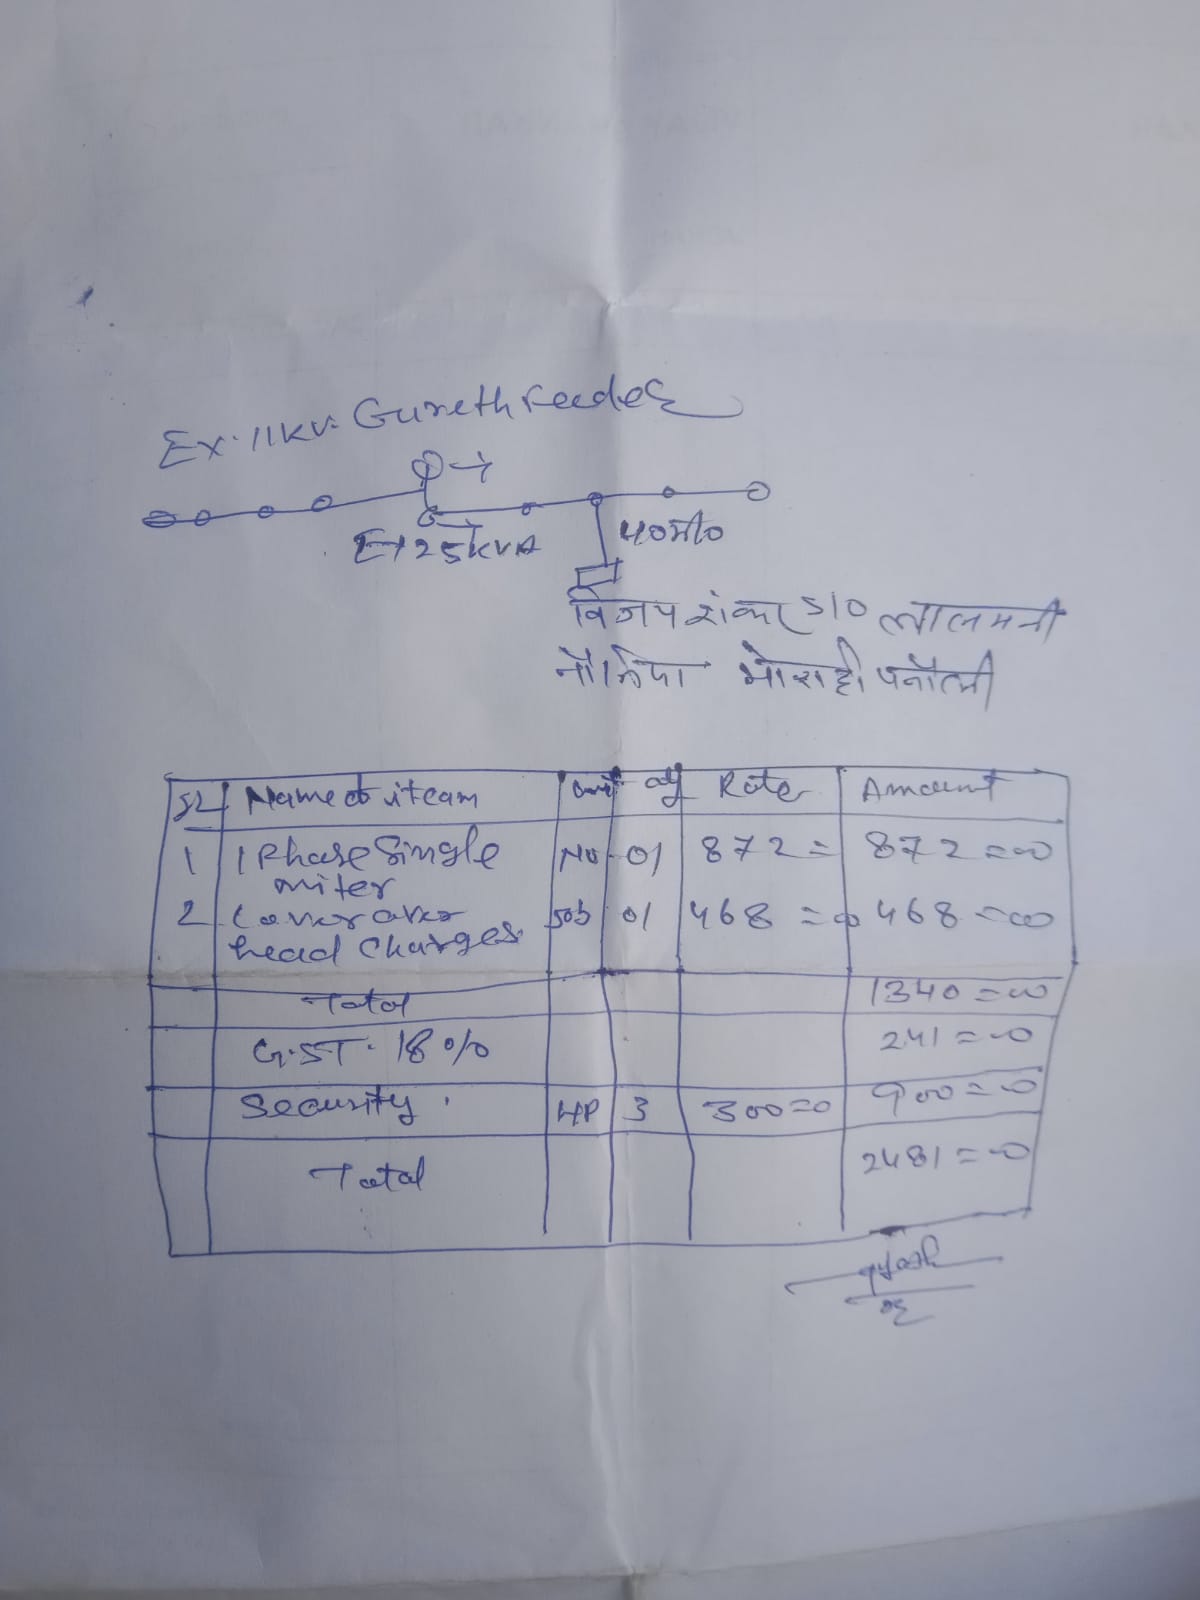 Ex. 11KV. Gureth Feeder
Ex 25KVA
40मी0
विजय शंकर S/O लालमनी
नौढिया भोराही पनौली
SL Name of iteam Unit qty Rate Amount
1 1 Phase Single miter No 01 872= 872=00
2 head Charges Job 01 468=00 468=00
Total 1340=00
G.S.T. 18% 241=00
Security. HP 3 300=0 900=00
Total 2481=00